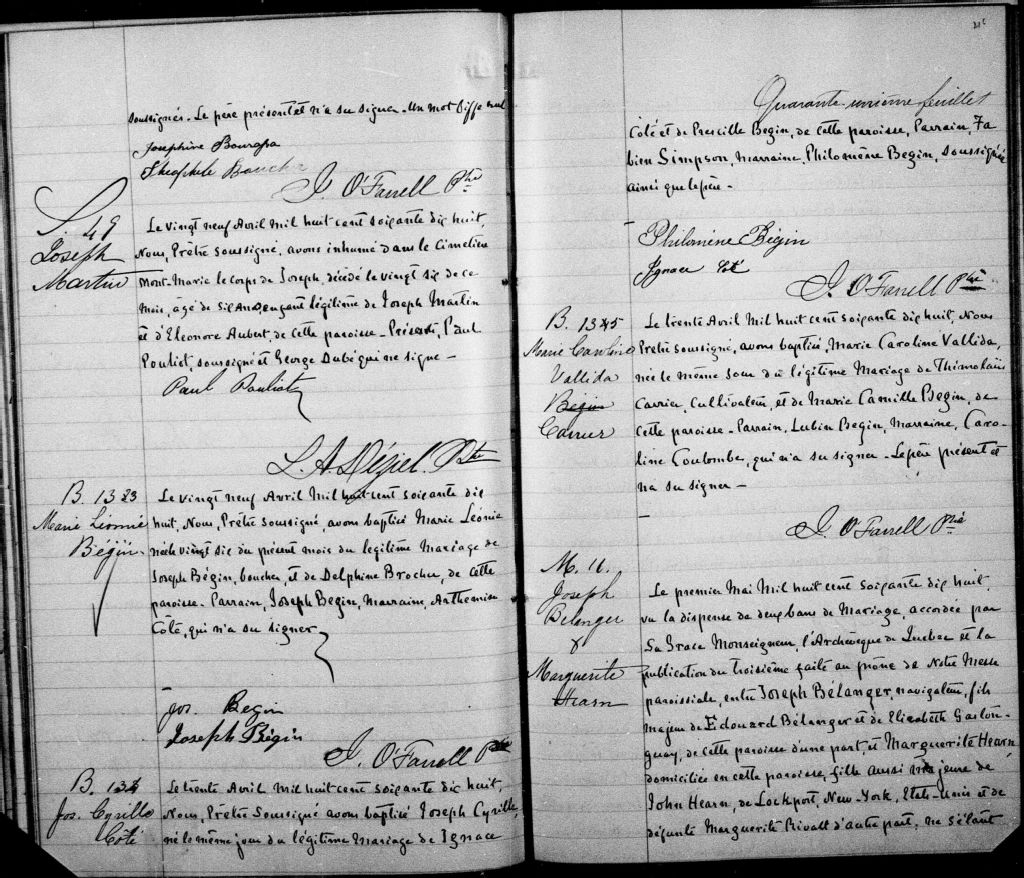 soussignés. Le père présent et n'a su signer. Un mot biffé nul
Josephine Bourassa
Theophile Boucher
J. O'Farrell Ptre
S. 49
Joseph
Martin
Le vingt neuf Avril Mil huit cent soixante dix huit,
Nous, Prêtre soussigné, avons inhumé dans le Cimetière
Mont-Marie le corps de Joseph, décédé le vingt six de ce
mois, âgé de six ans, enfant légitime de Joseph Martin
et d'Eleonore Aubert, de cette paroisse - Présents, Paul
Pouliot, soussigné et George Dubé qui ne signe -
Paul Pouliot
L. A Déziel Ptre
B. 13
Marie Léonie
Bégin
Le vingt neuf Avril Mil huit cent soixante dix
huit, Nous, Prêtre soussigné, avons baptisé Marie Léonie
née le vingt six du présent mois du legitime Mariage de
Joseph Bégin, boucher, et de Delphine Brochu, de cette
paroisse. Parrain, Joseph Begin, Marraine, Arthemise
Coté, qui n'a su signer
Jos. Begin
Joseph Bégin
J. O'Farrell Ptre
B. 134
Jos. Cyrille
Coté
Le trente Avril Mil huit cent soixante dix huit,
Nous, Prêtre Soussigné avons baptisé Joseph Cyrille,
né le même jour du légitime mariage de Ignace
Quarante unième feuillet
Coté et de Prescille Begin, de cette paroisse, Parrain, Fa
bien Simpson, Marraine, Philomène Begin, soussignée
ainsi que le père -
Philomène Bégin
Ignace Coté
J. O'Farrell Ptre
B. 135
Marie Caroline
Vallida
Begin
Carrier
Le trente Avril Mil huit cent soixante dix huit, Nous
Prêtre soussigné, avons baptisé, Marie Caroline Vallida,
née le même jour du légitime Mariage de
Carrier, Cultivateur, et de Marie Camille Begin, de
cette paroisse - Parrain, Lubin Begin, Marraine, Caro-
line Coulombe, qui n'a su signer - Le père présent et
n'a su signer -
J. O'Farrell Ptre
M. 16.
Joseph
Belanger
&
Marguerite
Hearn
Le premier Mai Mil huit cent soixante dix huit,
vu la dispense de deux bans de Mariage, accordée par
Sa Grace Monseigneur, l'Archevêque de Quebec et la
publication du troisième faite au prône de Notre Messe
paroissiale, entre Joseph Bélanger, navigateur, fils
majeur de Edouard Bélanger et de Elizabeth Gaston-
guay, de cette paroisse d'une part, et Marguerite Hearn
domiciliée en cette paroisse, fille aussi majeure de
John Hearn, de Lockport, New-York, Etats-Unis et de
défunte Marguerite d'autre part, ne s'étant